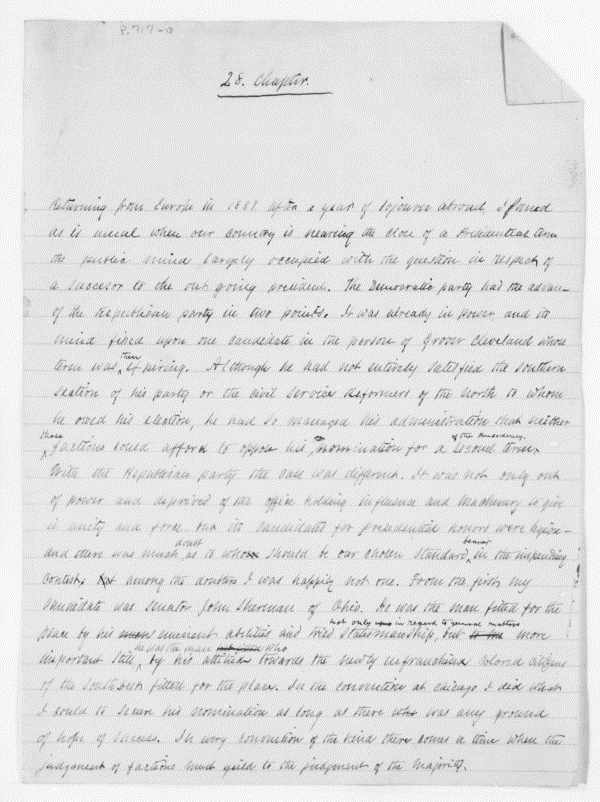 P. 717-18
28. Chapter.
Returning from Europe in 1887 after a year of sojourn abroad, I found
as is usual when our country is nearing the close of a Presidential term
the public mind largely occupied with the question in respect of
a succesor to the out going president. The Democratic party had the advan-
of the Republican party in two points. It was already in power and its
mind fixed upon one candidate in the person of Grover Cleveland whose
term was then expiring. Although he had not entirely satisfied the southern
section of his party or the civil service Reformers of the North to whom
he owed his election, he had so managed his administration that neither
these factions could afford to oppose his nomination for a second term of the Presidency.
With the Republican party the case was different. It was not only out
of power and deprived of the office holding influence and Machinery to give
it unity and force but its candidates for presidential honors were legion-
and there was much doubt as to who should be our chosen Standard bearer in the impending
contest. among the doubters I was happily not one. From the first, my
candidate was Senator John Sherman of Ohio. He was the man fitted for the
place by his eminent abilities and tried Statesmanship, not only in regard to general matters but more
important still, he was the man who by his attitude towards the newly enfranchised colored citizens
of the South best fitted for the place. In the convention at chicago I did what
I could to secure his nomination as long as there was any ground
of hope of success. In every convention of the kind there comes a time when the
judgement of factions must yield to the judgment of the Majority.